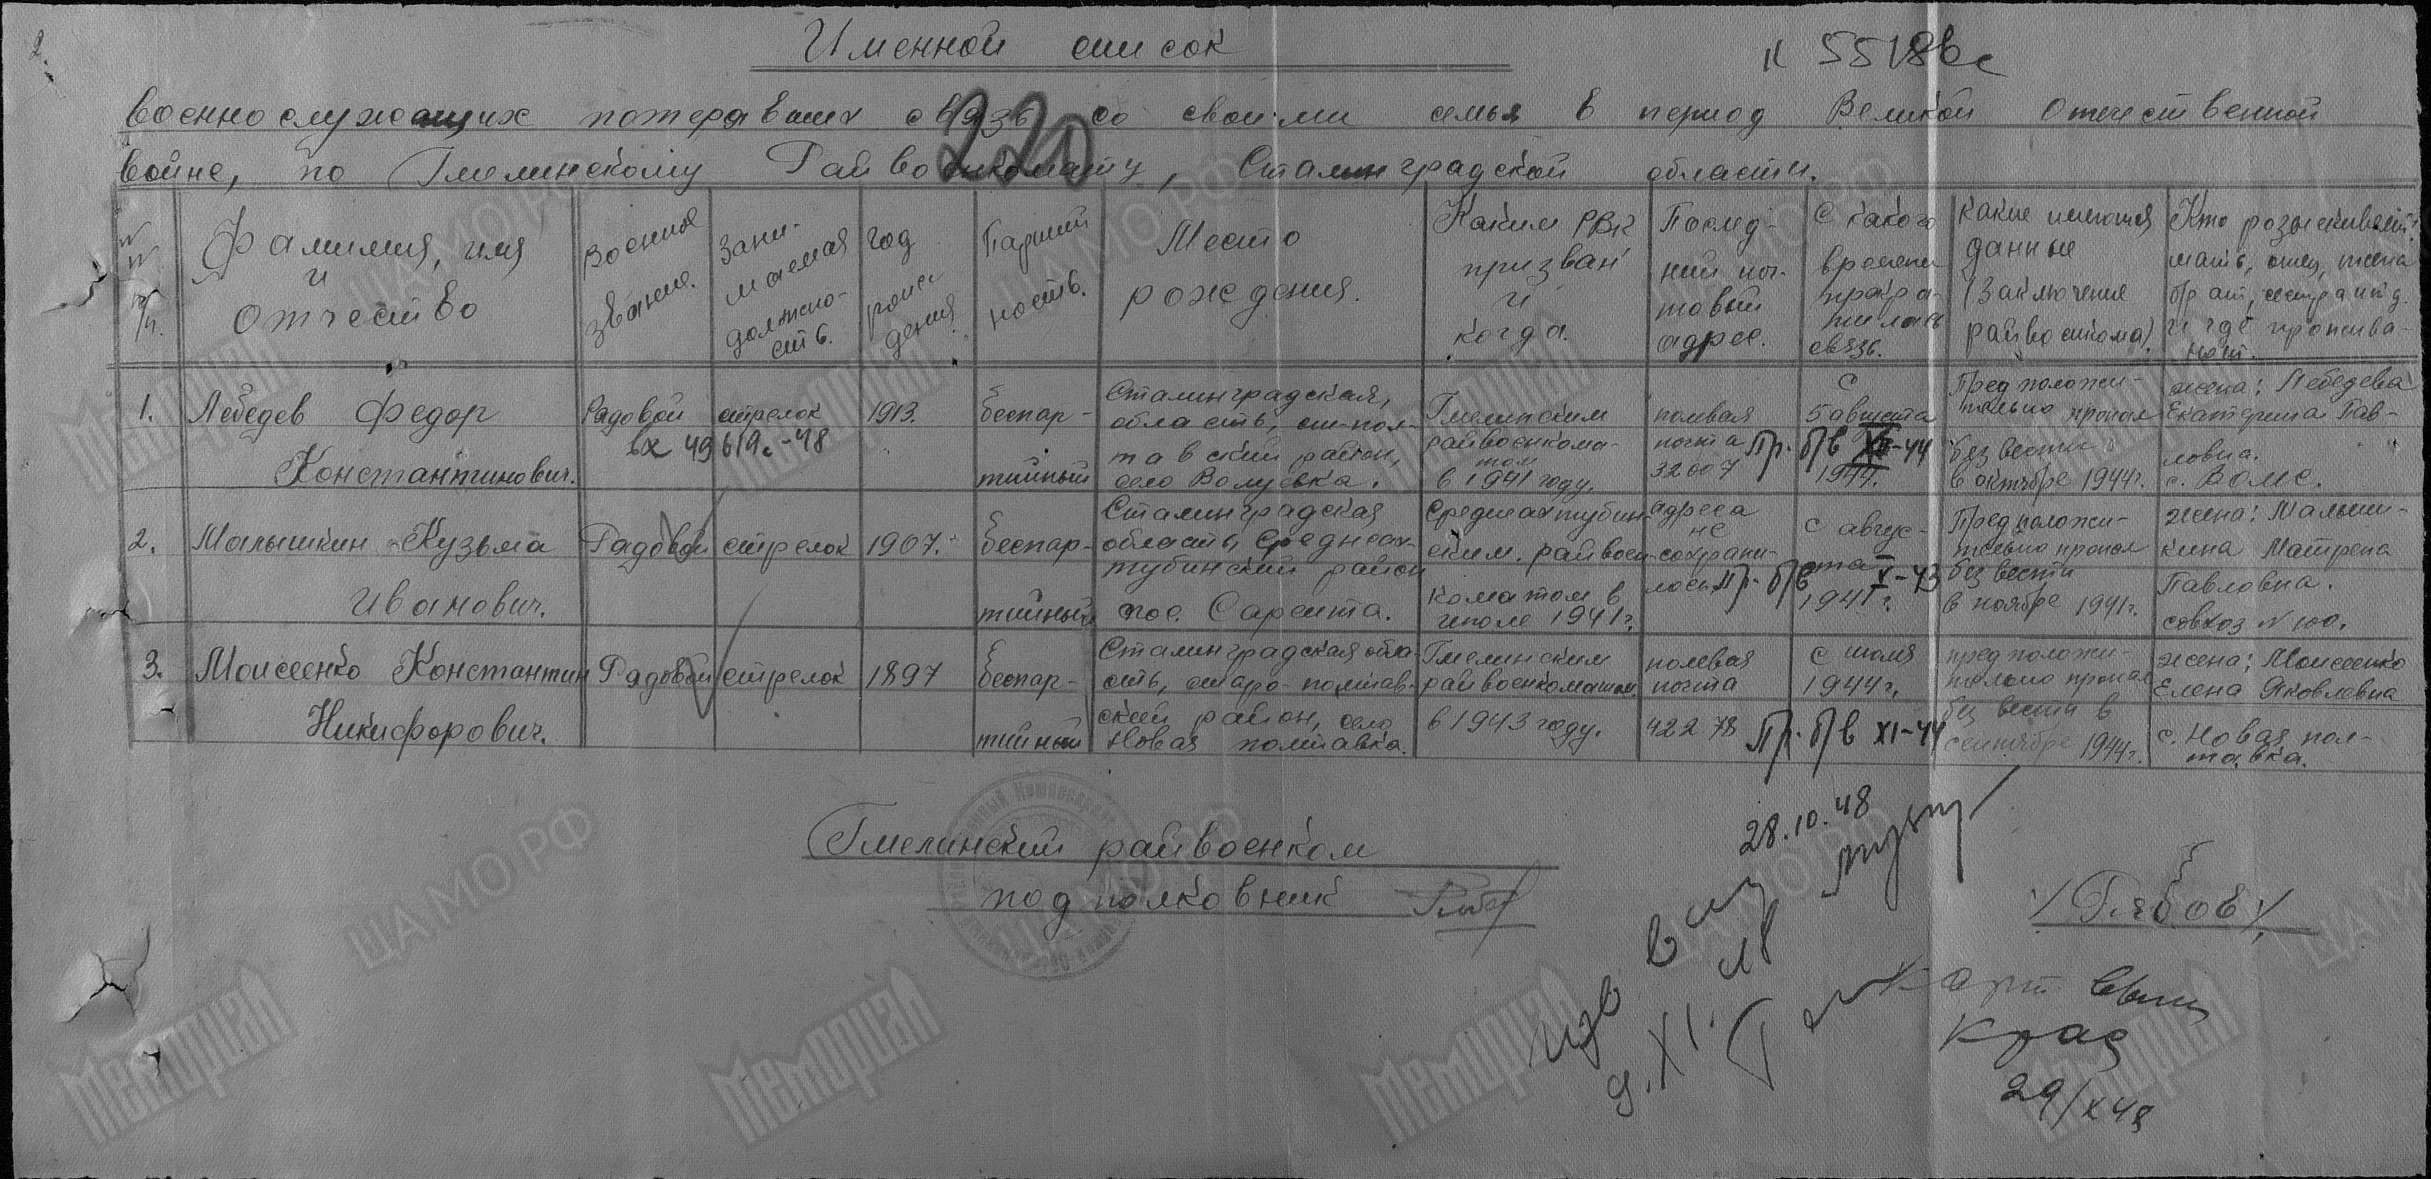 2.
Именной список
к 55186с
военнослужащих потерявших связь со своими семья в период Великой Отечественной
220
войне, по Гмелинскому Райвоенкомату, Сталинградской области.
№ № п/п.
Фамилия, имя и отчество
Военное звание.
Занимаемая должность.
год рождения
Партийность.
Место рождения.
Каким РВК призван и когда.
Последний почтовый адрес.
С какого времени прекратилась связь.
Какие имеются данные (Заключения райвоенкома).
Кто розыскивает: мать, отец, жена брат, сестра и т.д. и где проживают.
1.
Лебедев Федор
Константинович.
Рядовой
стрелок
вх 49619с-48
1913.
беспар-
тийный
Сталинградская,
область, ст-пол-
тавский район,
село Валуевка.
Гмелинским
райвоенкома-
том
в 1941 году.
полевая
почта
32007
С
5 августа
1944.
Пр. б/в XII-44
Предположи-
тельно пропал
без вести
в октябре 1944г.
жена: Лебедева
Екатерина Пав-
ловна.
с. Валуе.
2.
Малышкин Кузьма
Иванович.
Рядовой
стрелок
1907.
беспар-
тийный
Сталинградская
область, Среднеах-
тубинский район
пос. Сарепта.
Среднеахтубин-
ским. райвоен-
коматом в
июле 1941г.
адреса
не
сохрани-
лось
с авгус-
та
1941г.
Пр. б/в X-43
Предположи-
тельно пропал
без вести
в ноябре 1941г.
жена: Малыш-
кина Матрена
Павловна.
совхоз №100.
3.
Моисеенко Константин
Никифорович.
Рядовой
стрелок
1897
беспар-
тийный
Сталинградская обла-
сть, старо-полтав-
ский район, село
Новая полтавка.
Гмелинским
райвоенкоматом
в 1943 году.
полевая
почта
42278
с июля
1944г.
Пр. б/в XI-44
предположи-
тельно пропал
без вести в
сентябре 1944г.
жена: Моисеенко
Елена Яковлевна
с. Новая пол-
тавка.
Гмелинский райвоенком
подполковник
/Рябов/
28.10.48
изв
9.XI.48
карт
29/X 48
Мемориал
ЦАМО РФ